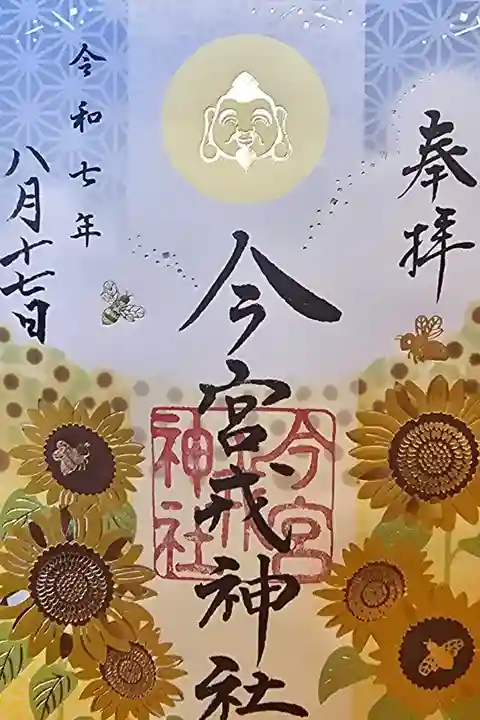 奉拝
今宮戎神社
今宮戎神社
令和七年
八月十七日